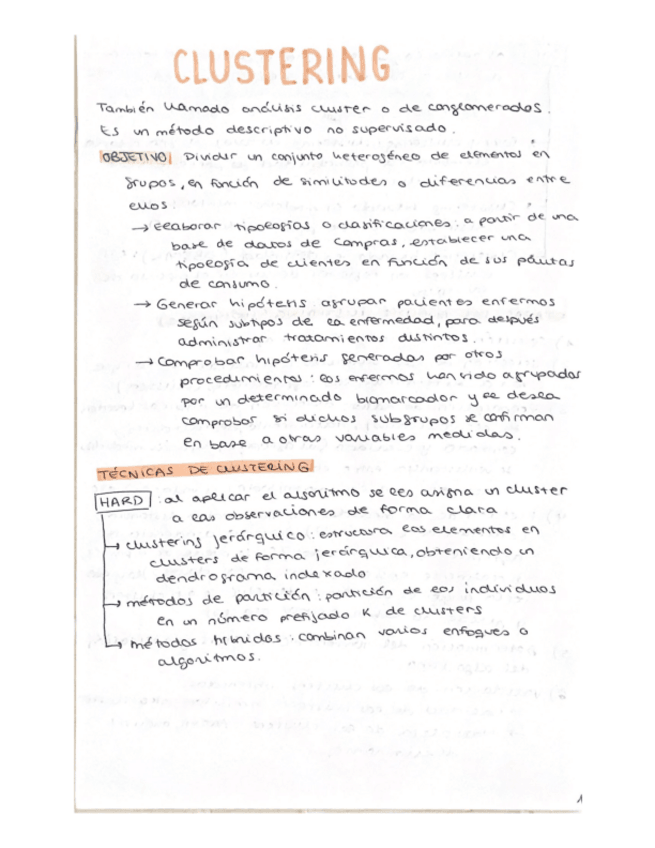 CLUSTERING
También llamado análisis cluster o de conglomerados.
Es un método descriptivo no supervisado.
OBJETIVO Dividir un conjunto heterogéneo de elementos en
grupos, en función de similitudes o diferencias entre
ellos:
→ elaborar tipologías o clasificaciones: a partir de una
base de datos de compras, establecer una
tipología de clientes en función de sus pautas
de consumo.
→ Generar hipótesis agrupar pacientes enfermos
según subtipos de la enfermedad, para después
administrar tratamientos distintos.
→ Comprobar hipótesis generadas por otros
procedimientos: los enfermos han sido agrupados
por un determinado biomarcador y se desea
comprobar si dichos subgrupos se confirman
en base a otras variables medidas.
TÉCNICAS DE CLUSTERING
HARD: al aplicar el algoritmo se les asigna un cluster
a las observaciones de forma clara
→ clustering jerárquico: estructura los elementos en
clusters de forma jerárquica, obteniendo un
dendrograma indexado
→ métodos de partición: partición de los individuos
en un número prefijado K de clusters
→ métodos híbridos: combinan varios enfoques o
algoritmos.
1